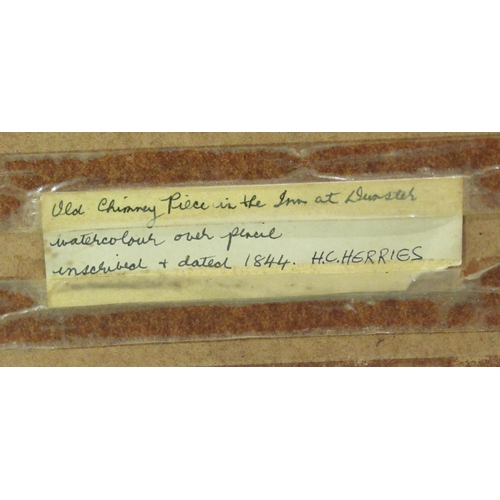 Old Chimney Piece in the Inn at Dunster
watercolour over pencil
inscribed + dated 1844. H.C.HERRIES